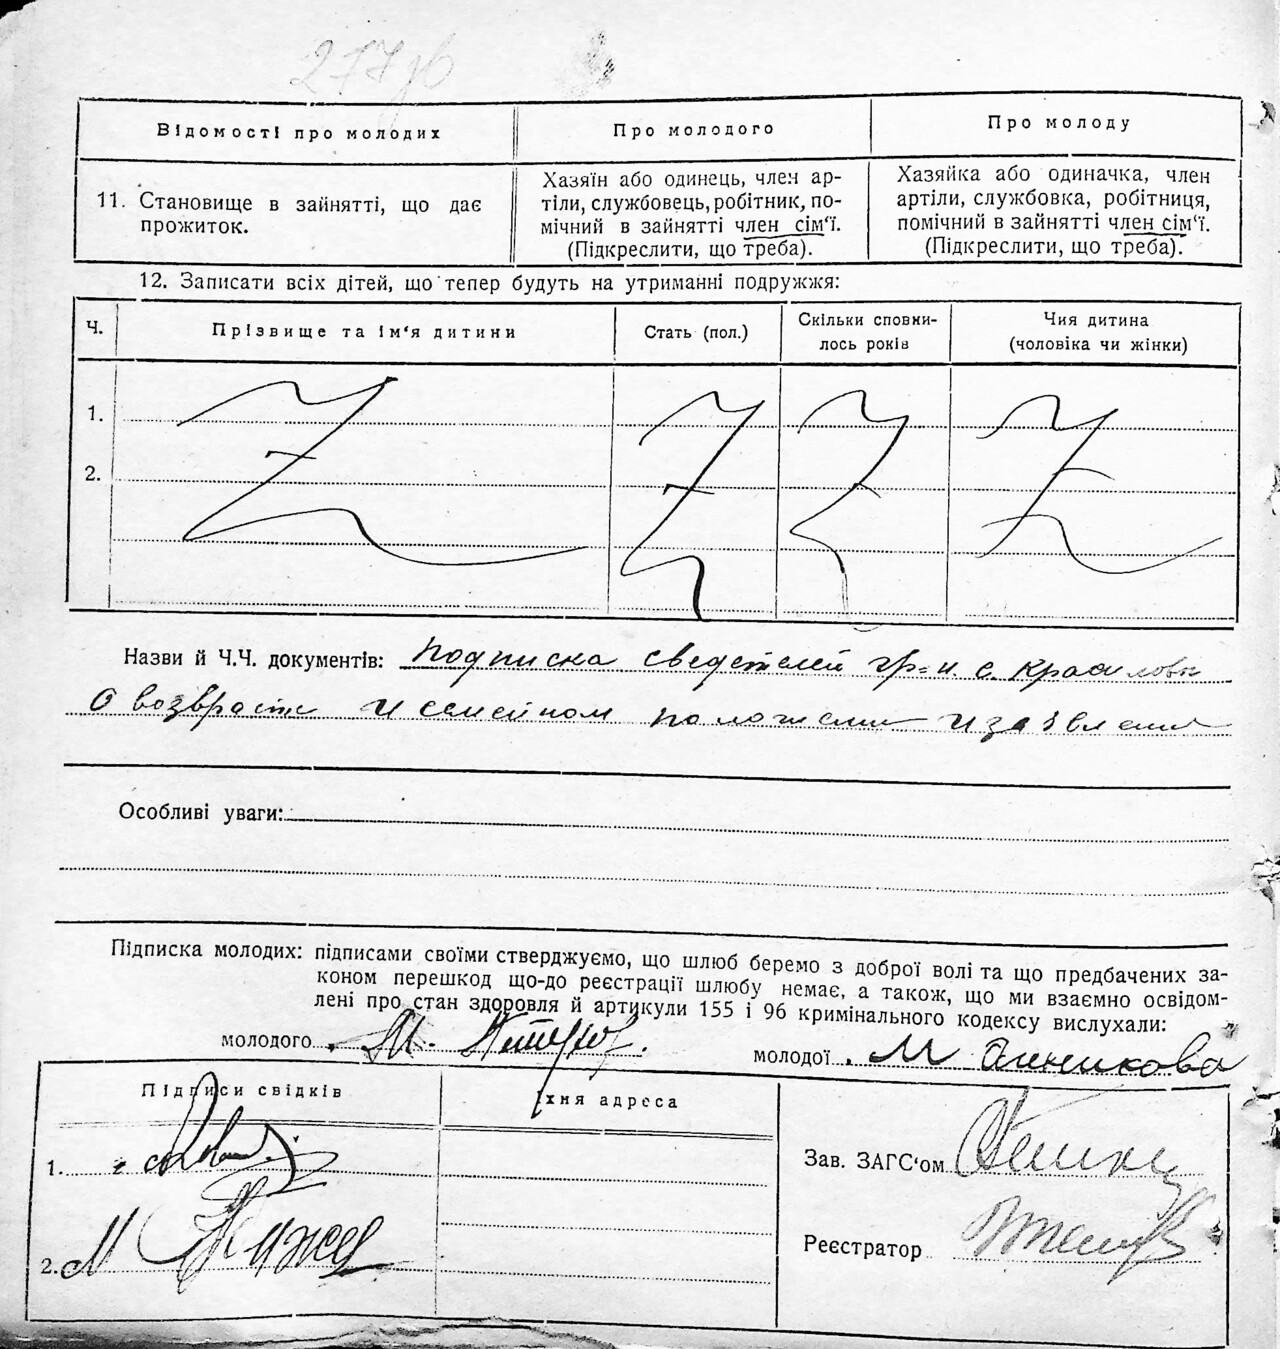 277зв
Відомості про молодих
Про молодого
Про молоду
11. Становище в зайнятті, що дає
прожиток.
Хазяїн або одинець, член ар-
тіли, службовець, робітник, по-
мічний в зайнятті член сім'ї.
(Підкреслити, що треба).
Хазяйка або одиначка, член
артіли, службовка, робітниця,
помічний в зайнятті член сім'ї.
(Підкреслити, що треба).
12. Записати всіх дітей, що тепер будуть на утриманні подружжя:
Ч.
Прізвище та ім'я дитини
Стать (пол.)
Скільки сповни-
лось років
Чия дитина
(чоловіка чи жінки)
1.
2.
Назви й Ч.Ч. документів: подписка свидетелей гр-н. с.
о возврасте и семейном положении и
Особливі уваги:
Підписка молодих: підписами своїми стверджуємо, що шлюб беремо з доброї волі та що предбачених за-
коном перешкод що-до реєстрації шлюбу немає, а також, що ми взаємно освідом-
лені про стан здоровля й артикули 155 і 96 кримінального кодексу вислухали:
молодого
молодої М
Підписи свідків
Їхня адреса
1.
2.
Зав. ЗАГС'ом
Реєстратор